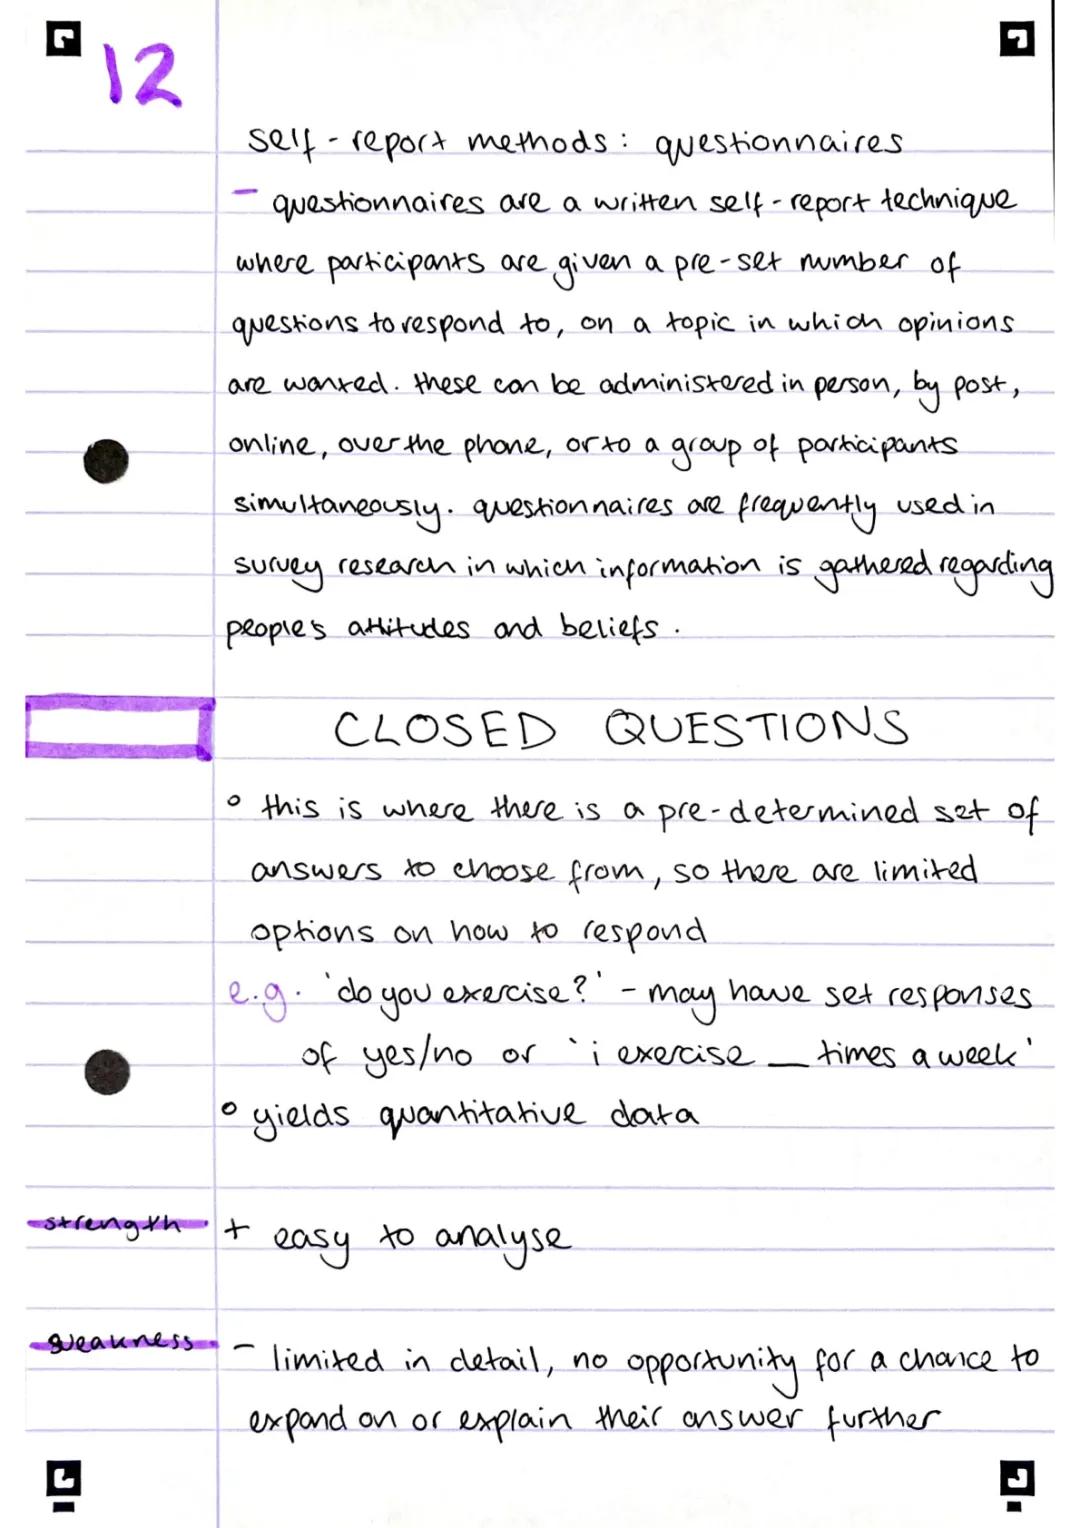 12
self-report methods: questionnaires
- questionnaires are a written self-report technique
where participants are given a pre-set number of
questions to respond to, on a topic in which opinions
are wanted. these can be administered in person, by post,
online, over the phone, or to a group of participants
simultaneously. questionnaires are frequently used in
survey research in which information is gathered regarding
people's attitudes and beliefs.
CLOSED QUESTIONS
° this is where there is a pre-determined set of
answers to choose from, so there are limited
options on how to respond
e.g. 'do you exercise?' - may have set responses
of yes/no or 'i exercise _ times a week'
° yields quantitative data
strength + easy to analyse
weakness - limited in detail, no opportunity for a chance to
expand on or explain their answer further